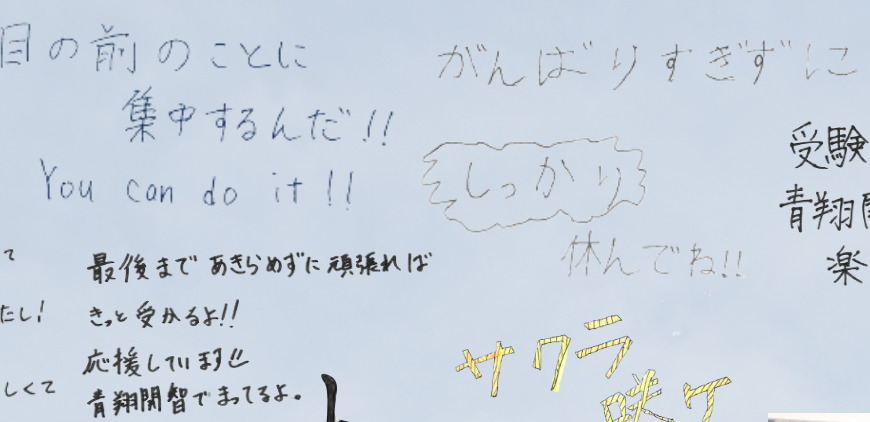 目の前のことに
集中するんだ!!
You can do it!!
がんばりすぎずに
しっかり
休んでね!!
受験
青翔開
楽
て
たし!
しくて
最後まであきらめずに頑張れば
きっと受かるよ!!
応援しています
青翔開智でまってるよ。
サクラ
咲ケ